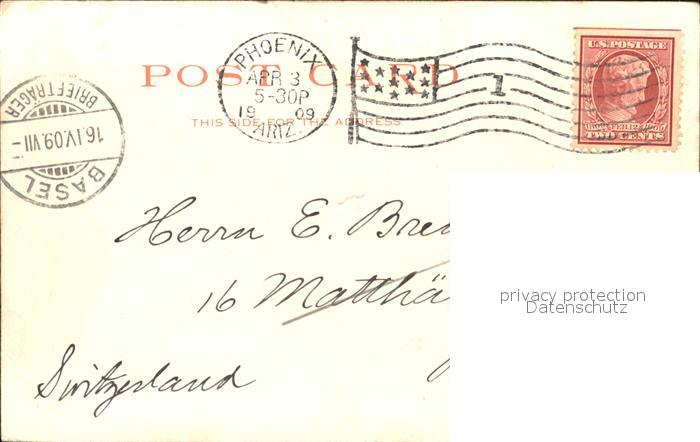 POST CARD
THIS SIDE FOR THE ADDRESS
PHOENIX
APR 3
5-30P
19 09
ARIZ.
1
U.S. POSTAGE
TWO CENTS
BRIEFTRÄGER
16.IV.09.VII-
BASEL
Herrn E. Bre
16 Matthä
Switzerland
privacy protection
Datenschutz